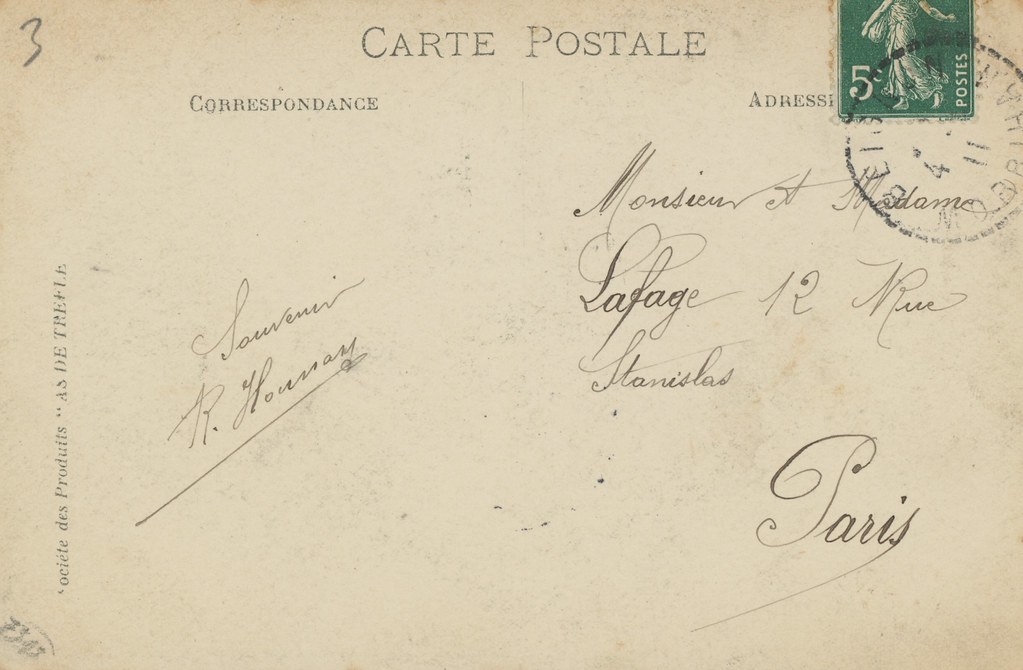 3
CARTE POSTALE
CORRESPONDANCE
ADRESSE
5c
POSTES
4
11
Monsieur et Madame
Lafage 12 Rue
Stanislas
Paris
Souvenir
R. Houssay
Société des Produits "AS DE TREFLE